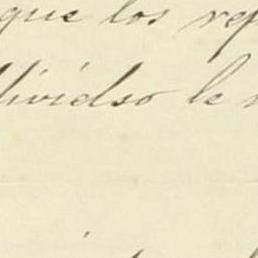 que los rep
lividso le